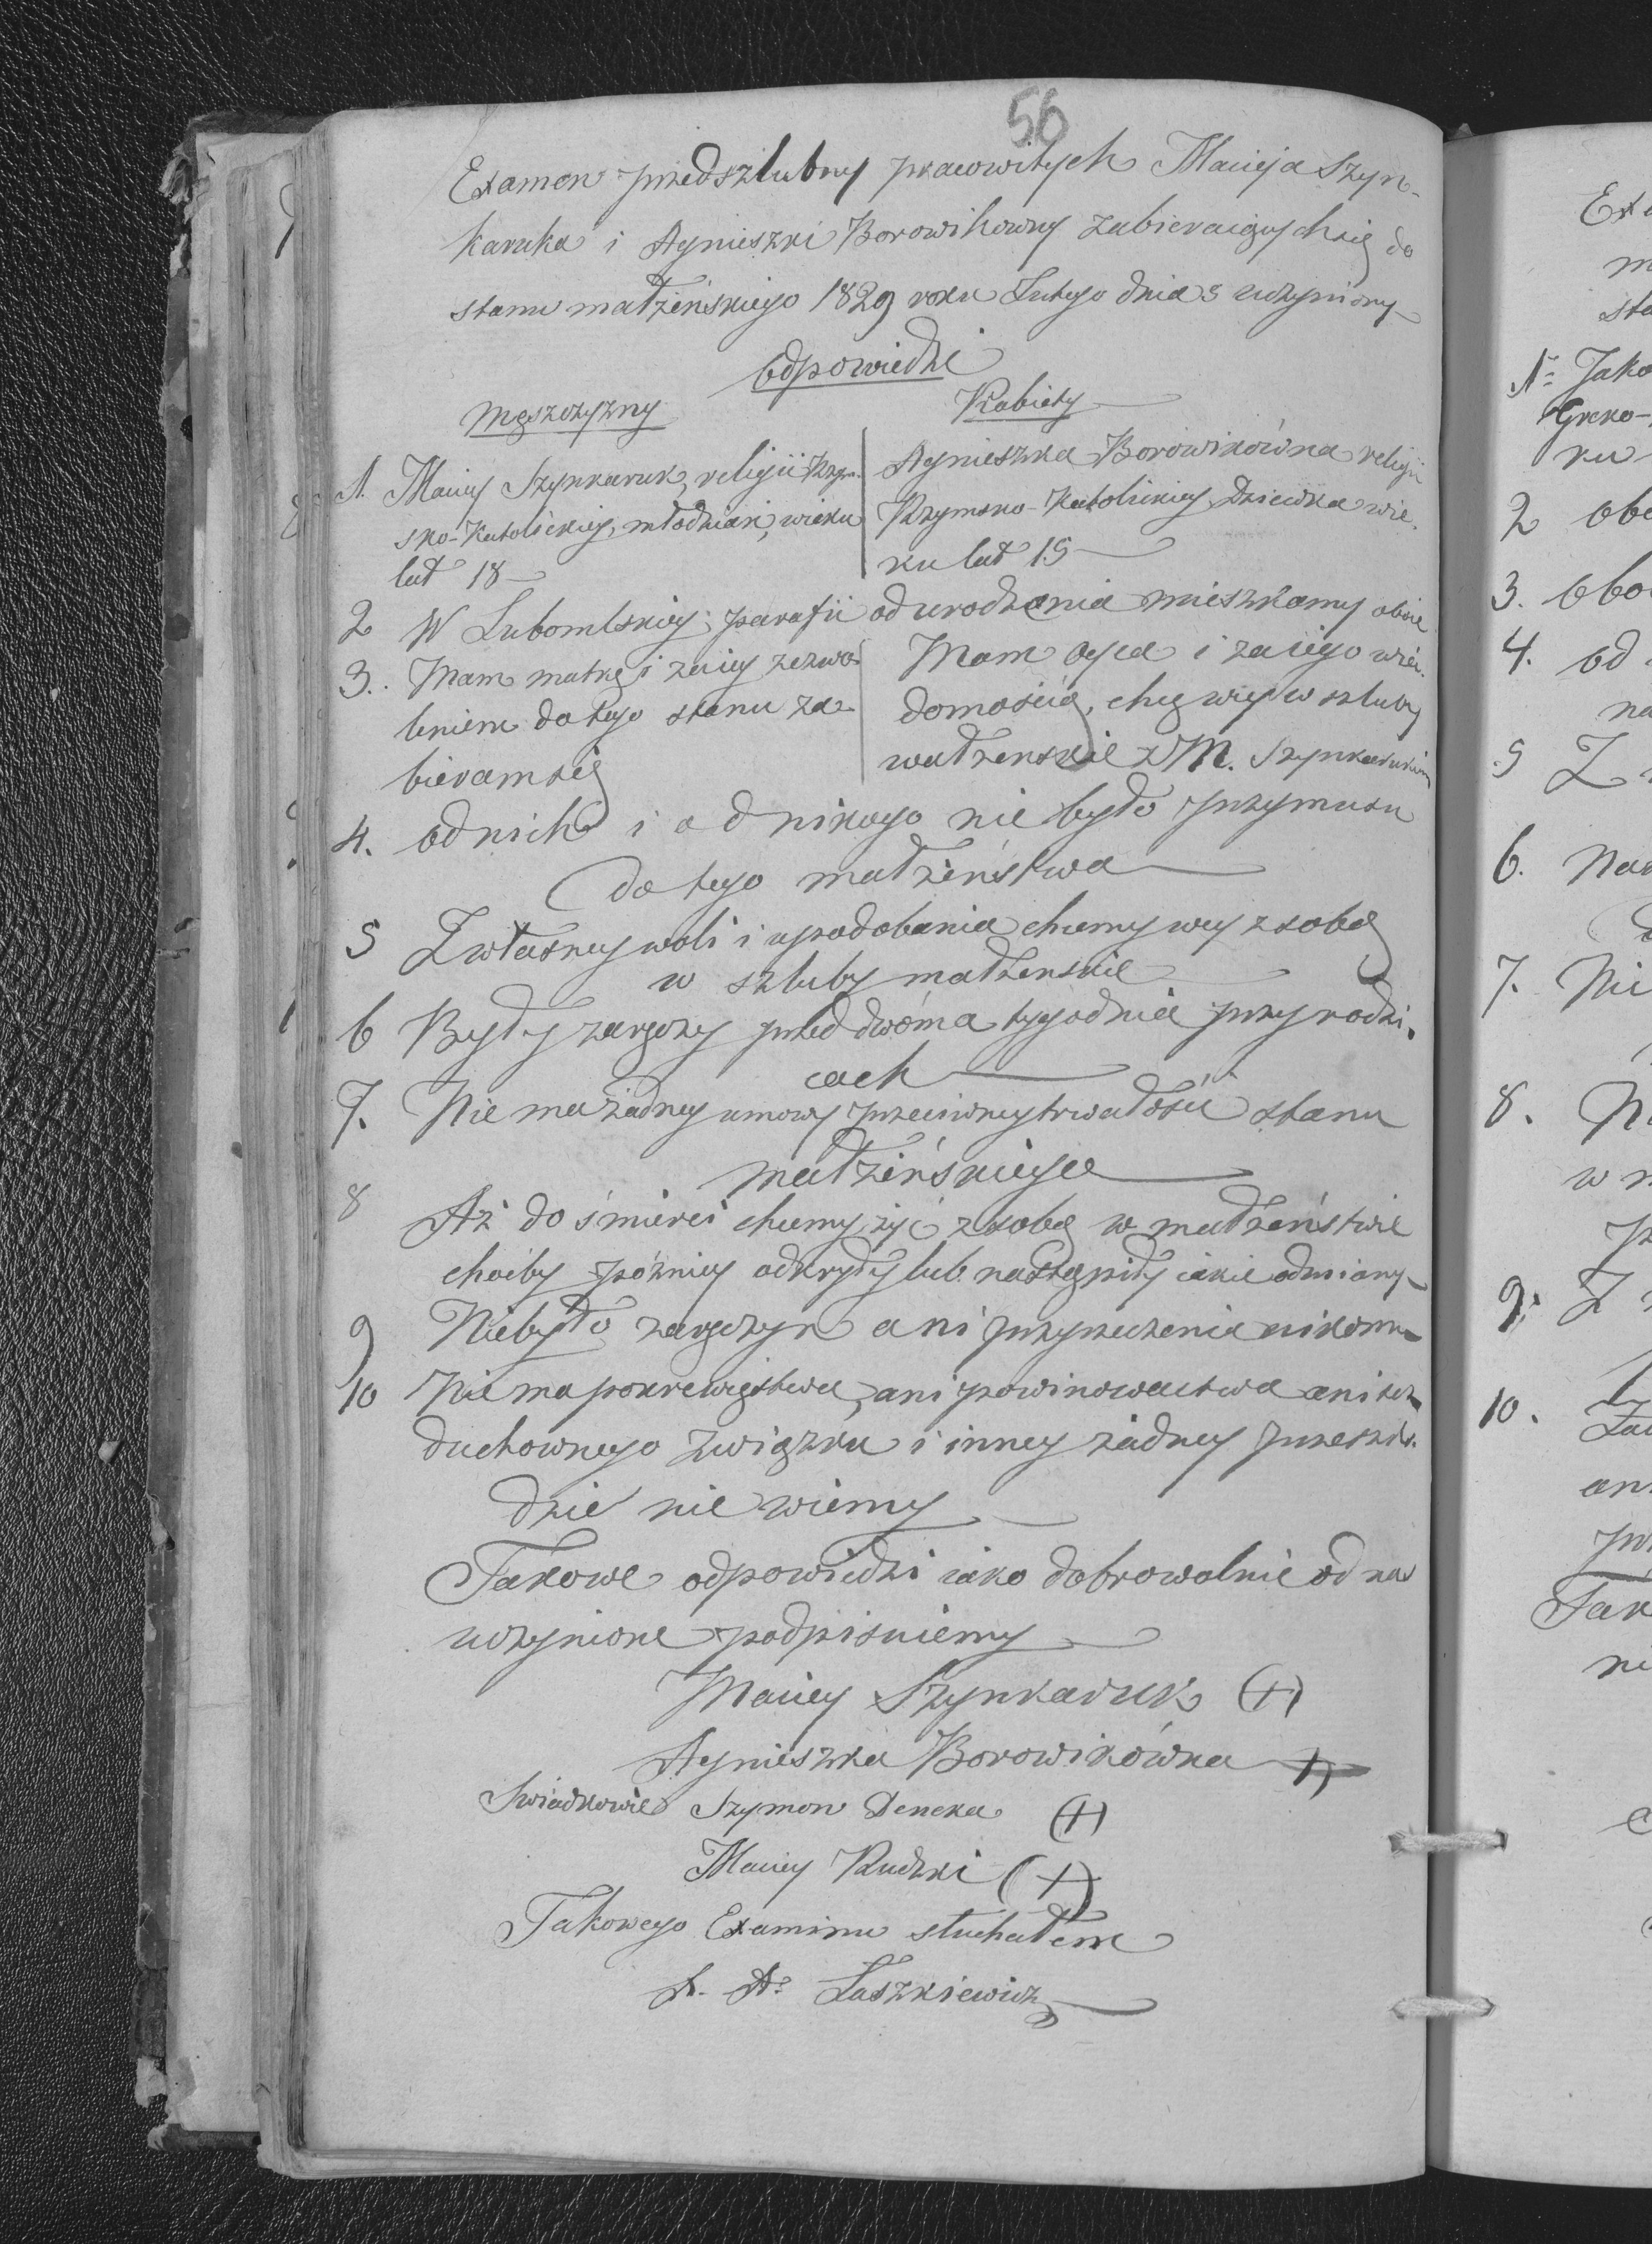 56
Examen przedszlubny pracowitych Macieja Szyn-
karuka i Agnieszki Borowikowny zabieraiących się do
stanu małżeńskiego 1829 roku Lutego dnia 3 uczyniony
Odpowiedzi
Męszczyzny
Kobiety
1. Maciey Szynkaruk, religii Rzym-
sko-Katolickiey, młodzian, wieku
lat 18
Agnieszka Borowikówna religii
Rzymsko-Katolickiey Dziewka wie-
ku lat 15
2 W Lubomlskiey parafii od urodzenia mieszkamy oboie
3. Mam matkę i za iey zezwo-
leniem do tego stanu za-
bieram się
Mam oyca i za iego wia-
domością, chcę wyść w szluby
małżenskie z M. Szynkarukiem
4. od nich i od nikogo nie było przymusu
do tego małżeństwa
5 Z własney woli i upodobania chcemy weyść z sobą
w szluby małżenskie
6 Były zaręczy przed dwóma tygodnia przy rodzi-
cach
7. Nie ma żadney umowy przeciwney trwałości stanu
małżeńskiego
8 Aż do śmierci chcemy żyć z sobą w małżeństwie
choćby późniey odkryły lub nastąpiły iakie odmiany
9 Niebyło zaręczyn ani przyrzeczenia nikomu
10 Nie ma pokrewięstwa, ani powinowactwa ani też
duchownego związku i inney żadney przeszko-
dzie nie wiemy
Takowe odpowiedzi iako dobrowolnie od nas
uczynione podpisuiemy
Maciey Szynkaruk (+)
Agnieszka Borowikówna +)
Swiadkowie Szymon Deneka (+)
Maciey Rudzki (+)
Takowego Examinu słuchałem
X. A. Laszkiewicz
Exa
m
sta
1= Jako
Greko-
ku
2 obo
3. obo
4. od
na
5 Z
6. Na
7. Ni
8. N
w m
9. Z
10.
an
Tak